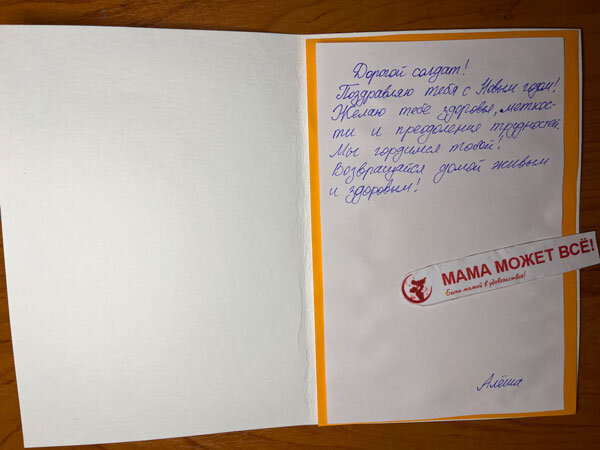 Дорогой солдат!
Поздравляю тебя с Новым годом!
Желаю тебе здоровья, меткос-
ти и преодоления трудностей.
Мы гордимся тобой!
Возвращайся домой живым
и здоровым!
МАМА МОЖЕТ ВСЁ!
Быть мамой в удовольствие!
Алёша